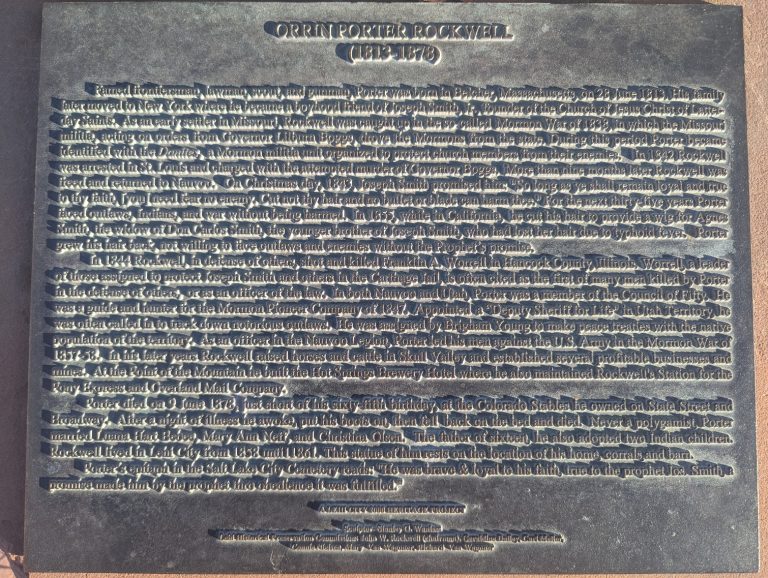 ORRIN PORTER ROCKWELL
(1813-1878)
Famed frontiersman, lawman, scout and gunman, Porter was born in Belcher, Massachusetts, on 28 June 1813. His family
later moved to New York where he became a loyal friend of Joseph Smith, Founder of the Church of Jesus Christ of Latter-
day Saints. As an early settler in Missouri, Rockwell was caught up in the so called Mormon War of 1838, in which the Missouri
militia, acting on orders from Governor Lilburn Boggs, drove the Mormons from the state. During this period Porter became
identified with the Danites, a Mormon militia unit organized to protect church members from their enemies. In 1842 Rockwell
was arrested in St. Louis and charged with the attempted murder of Governor Boggs. More than nine months later, Rockwell was
freed and returned to Nauvoo. On Christmas day, 1843, Joseph Smith promised him: "So long as ye shall remain loyal and true
to thy faith, [you] need fear no enemy. Cut not thy hair and no bullet or blade can harm thee." For the next thirty-five years Porter
faced outlaws, Indians, and war without being harmed. In 1855, while in California, he cut his hair to provide a wig for Agnes
Smith, the widow of Don Carlos Smith, the younger brother of Joseph Smith, who had lost her hair due to typhoid fever. Porter
grew his hair back, not willing to face outlaws and enemies without the Prophet's promise.
In 1844 Rockwell, in defense of others, shot and killed Franklin A. Worrell in Hancock County, Illinois. Worrell, a leader
of those assigned to protect Joseph Smith and others in the Carthage Jail, is considered as the first of many men killed by Porter
in the defense of others, or as an officer of the law. In both Nauvoo and Utah, Porter was a member of the Council of Fifty. He
was a guide and hunter for the Mormon Pioneer Company of 1847. Appointed a "Deputy Sheriff for Life" in Utah Territory, he
was often called in to track down notorious outlaws. He was assigned by Brigham Young to make peace treaties with the native
population of the territory. As an officer in the Nauvoo Legion, Porter led his men against the U.S. Army in the Mormon War of
1857-58. In his later years Rockwell raised horses and cattle in Skull Valley and established several profitable businesses and
mines. At the Point of the Mountain he built the Hot Springs Brewery Hotel where he also maintained Rockwell's Station for the
Pony Express and Overland Mail Company.
Porter died on 9 June 1878, just short of his sixty-fifth birthday, at the Colorado Stables he owned on State Street and
Broadway. After a night of illness he awoke, put his boots on, then fell back on the bed and died. Never a polygamist, Porter
married Luana Hart Beebe, Mary Ann Neff, and Christina Olsen. The father of sixteen, he also adopted two Indian children.
Rockwell lived in Lehi City from 1858 until 1861. This statue of him rests on the location of his home, corrals and barn.
Porter's epitaph in the Salt Lake City Cemetery reads: "He was brave & loyal to his faith, true to the prophet Jos. Smith, a
promise made him by the prophet thro obedience it was fulfilled."
A LEHI CITY 2000 HERITAGE PROJECT
Sculptor - Stanley O. Wanlass
Lehi Historical Conservation Commission: John W. Rockwell (chairman),
Richard Van Wagoner